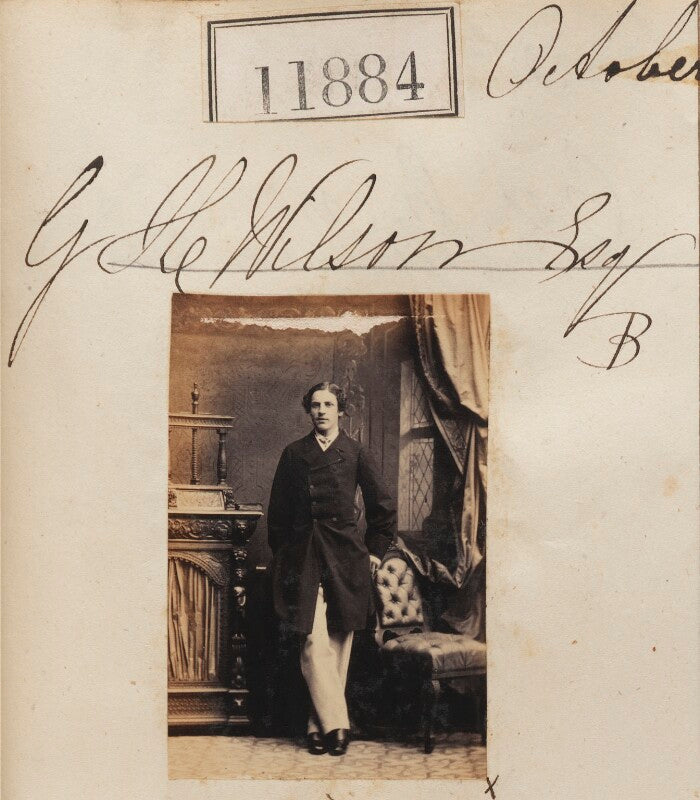 11884
October
G H Wilson Esq
B
x